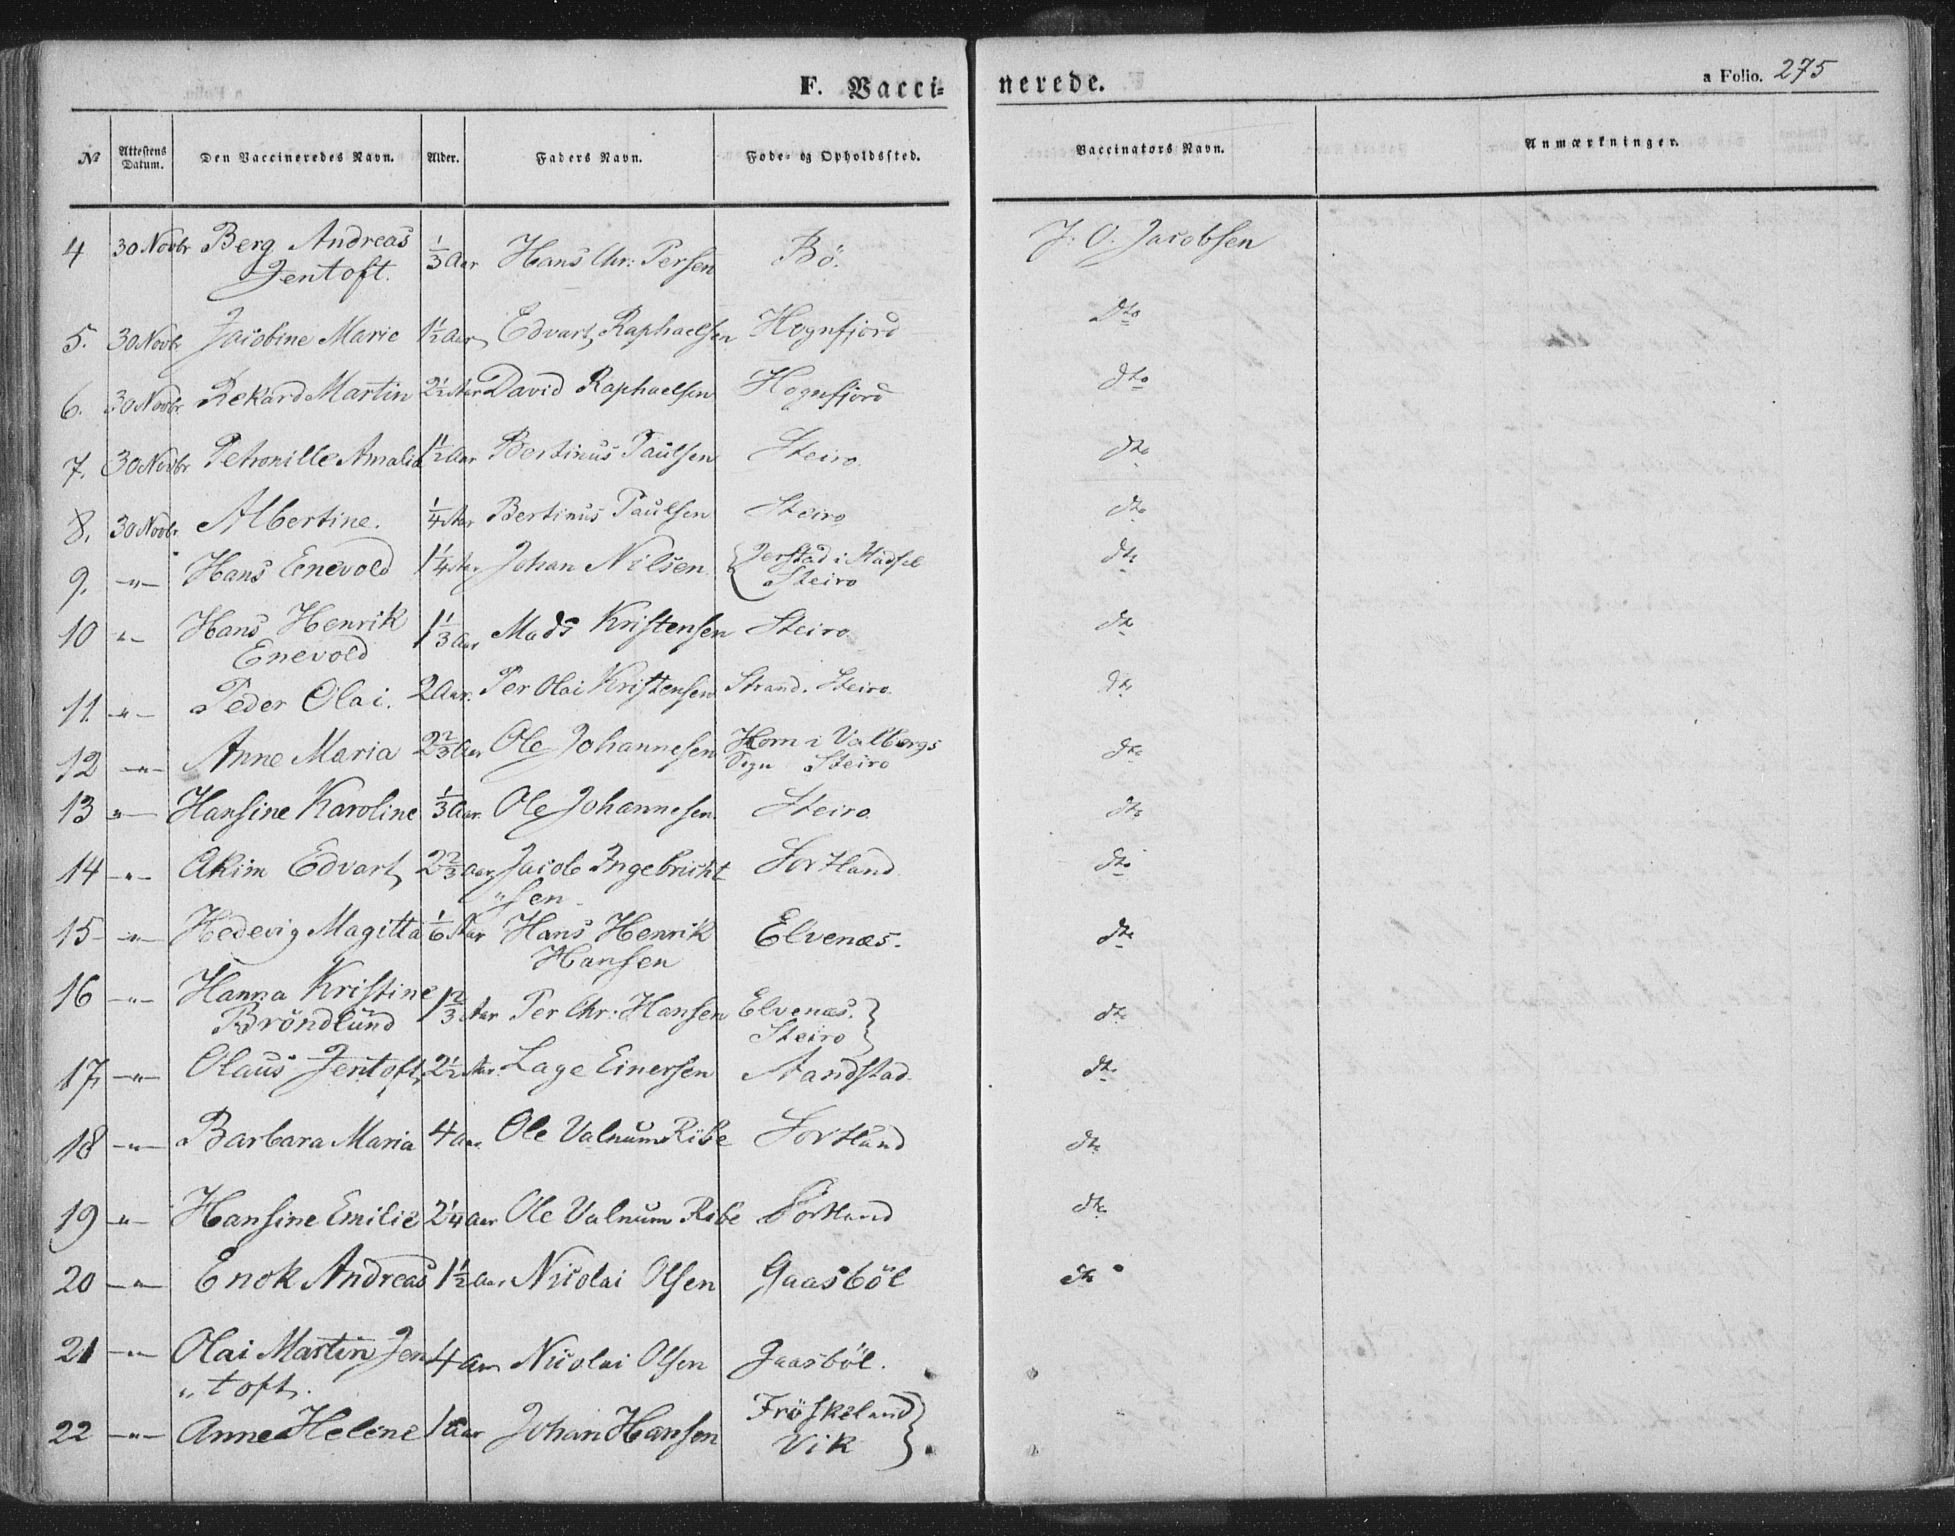 F. Vaccinerede.
a Folio. 275
№ Attestens Datum. Den Vaccineredes Navn. Alder. Faders Navn. Føde- og Opholdssted. Vaccinators Navn. Anmærkninger.
4 30 Novbr Berg Andreas Jentoft. 1/3 Aar Hans Chr: Persen Bö. J. O. Jacobsen
5. 30 Novbr Jacobine Marie 1 1/2 Aar Edvart Raphaelsen Hognfjord Dto
6. 30 Novbr Rekard Martin 2 1/2 Aar David Raphaelsen Hognfjord dto
7. 30 Novbr Petronille Amalia 1 1/2 Aar Bertinus Paulsen Steiro dto
8. 30 Novbr. Albertine. 1/4 Aar Bertinus Paulsen Steiro dto
9. -"- Hans Enevold 1 1/4 Aar Johan Nilsen {Jerstad i Hadsel
Steiro dto
10 -"- Hans Henrik Enevold 1 1/3 Aar Mads Kristensen Steiro dto
11. -"- Peder Olai. 2 Aar. Per Olai Kristensen Strand. Steiro. dto
12 -"- Anne Maria 2 2/3 Aar Ole Johannesen Horn i Valbergs
Sogn Steiro dto
13 -"- Hansine Karoline 1/3 Aar. Ole Johannesen Steiro. dto
14 -"- Akim Edvart 2 2/3 Aar Jacob Ingebricht
"sen. Sortland dto
15 -"- Hedevig Magitta 1/6 Aar Hans Henrik
Hansen Elvenæs. dto
16 -"- Hanna Kristine
Bröndlund 1 2/3 Aar Per Chr: Hansen Elvenæs.
Steiro} dto
17, -"- Olaus Jentoft, 2 1/2 Aar. Lage Einersen Sandstad. dto
18 -"- Barbara Maria 4 Aar Ole Valnum Ribe Sortland dto
19 -"- Hansine Emilie 2 1/4 Aar Ole Valnum Ribe Sortland dto
20 -"- Enok Andreas 1 1/2 Aar Nicolai Olsen Gaasböl dto
21 -"- Olai Martin Jen
"toft. 4 Aar Nicolai Olsen Gaasböl.
22 -"- Anne Helene 1 Aar Johan Hansen Fröskeland
Vik}